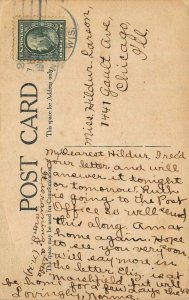 WIS.
Miss. Hildur Larson,
1441 Gault Ave,
Chicago,
Ill.
POST CARD
This space for Address only.
This space may be used for communication.
My Dearest Hildur, I rec'd
your letter and will
answer it tonight
or tomorrow. Ruth
is going to the Post
Office so will send
this along. Am at
home again. Hope
to see you very soon
will say more in
the letter.
be home for a few days
Lovingly, Norma.